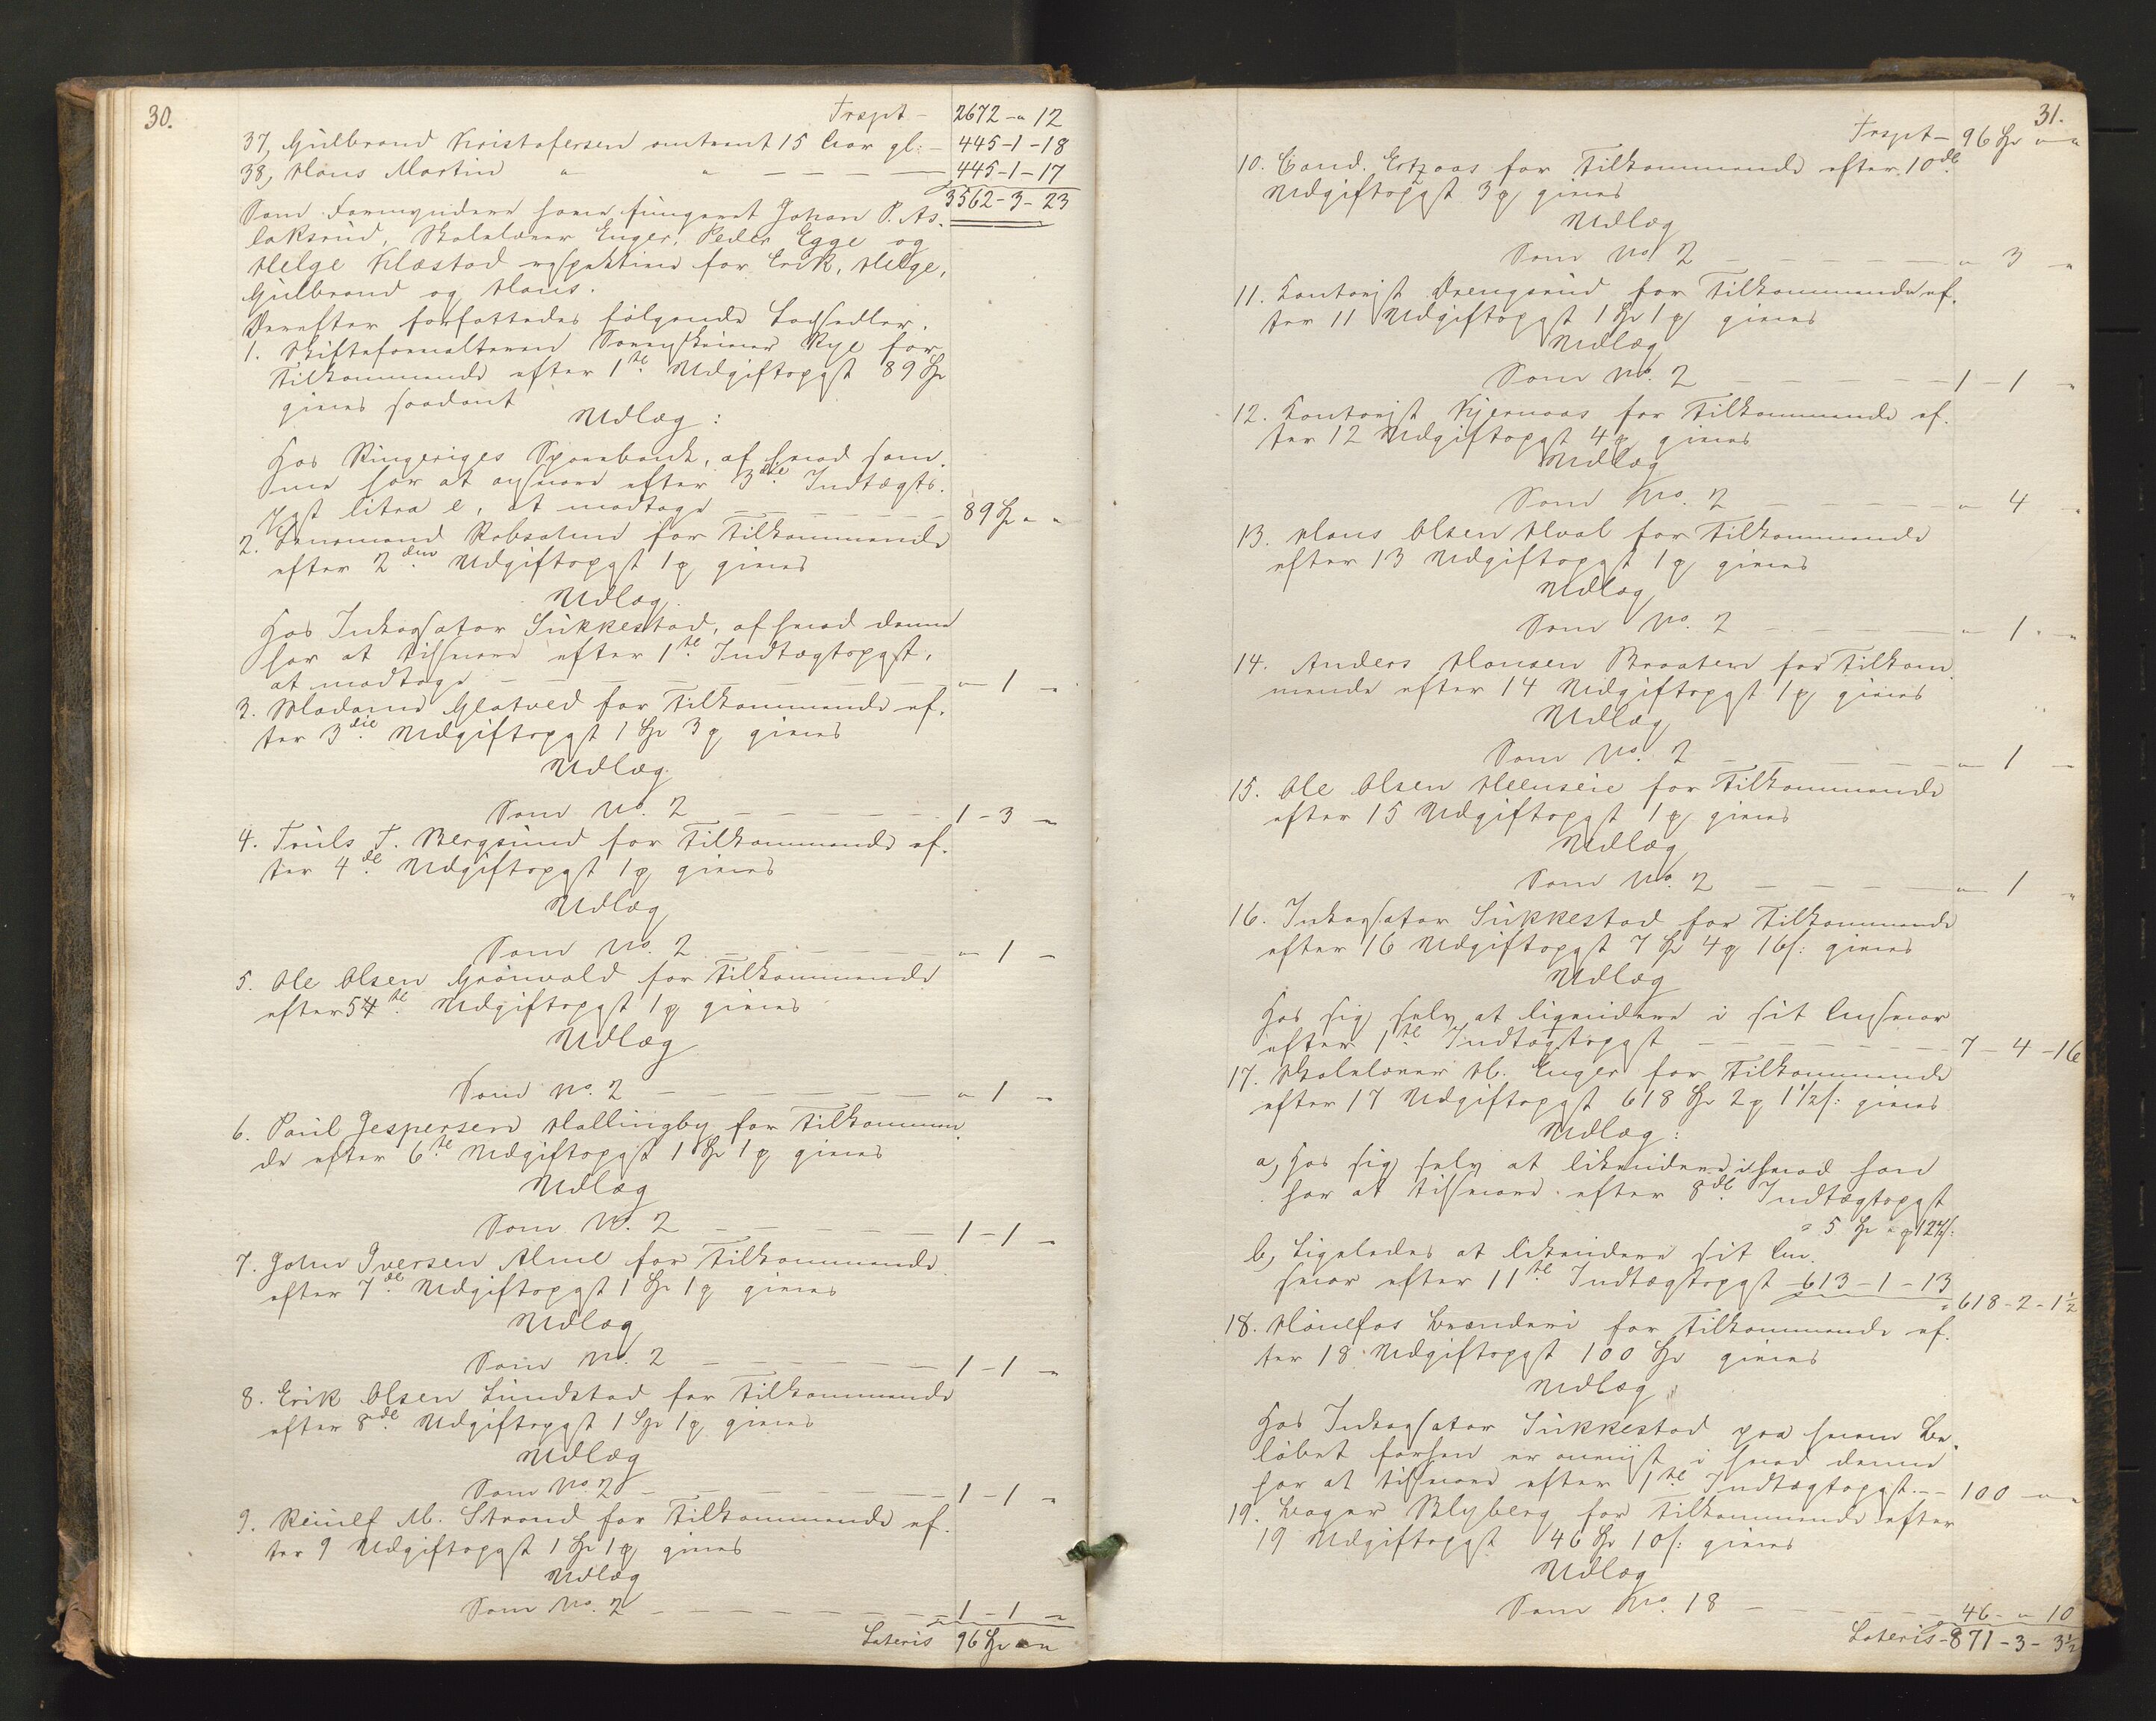 30.
Trspt - 2672 - " 12
37, Gulbrand Kristofersen omtrent 15 Aar gl: - 445-1-18
38, Hans Martin " " - - - - 445-1-17
3562-3-23
Som Formyndere have fungeret Johan P. As-
laksrud, Skolelærer Enger, Peder Egge og
Helge Klæstad respektive for Erik, Helge,
Gulbrand og Hans.
Derefter forfattedes følgende Lodsedler.
1. Skifteforvalteren Sorenskriver Rye for
Tilkommende efter 1ste Udgiftspost 89 Spd
gives saadant
Udlæg:
Hos Ringeriges Sparebank, af hvad sam-
me har at ansvare efter 3die Indtægts-
post litra e, at modtage - - - - 89 Spd " "
2. Lensmand Robsahm for Tilkommende
efter 2den Udgiftspost 1 ort gives
Udlæg.
Hos Inkassator Sukkestad, af hvad denne
har at tilsvare efter 1ste Indtægtspost,
at modtage - - - - - " 1 "
3. Madame Glatved for Tilkommende ef-
ter 3die Udgiftspost 1 Spd 3 ort gives
Udlæg.
Som No. 2 - - - - - 1 - 3 "
4. Truls T. Bergsund for Tilkommende ef-
ter 4de Udgiftspost 1 ort gives
Udlæg
Som No. 2 - - - - " 1 "
5. Ole Olsen Grönvold for Tilkommende
efter 5te Udgiftspost 1 ort gives
Udlæg
Som No. 2 - - - - - " 1 "
6. Paul Jespersen Hallingby for Tilkommen-
de efter 6te Udgiftspost 1 Spd 1 ort gives
Udlæg
Som No. 2 - - - - 1 - 1 "
7. John Iversen Alme for Tilkommende
efter 7de Udgiftspost 1 Spd 1 ort gives
Udlæg
Som No. 2 - - - - - 1 - 1 "
8. Erik Olsen Lundstad for Tilkommende
efter 8de Udgiftspost 1 Spd 1 ort gives
Udlæg
Som No. 2 - - - - - 1 - 1 "
9. Reiulf M. Strand for Tilkommende ef-
ter 9 Udgiftspost 1 Spd 1 ort gives
Udlæg
Som No. 2 - - - - - - 1 - 1 "
Lateris 96 Spd " "
31.
Trspt - 96 Spd " "
10. Cand. for Tilkommende efter 10de
Udgiftspost 3 ort gives
Udlæg
Som No. 2 - - - - - " 3 "
11. Kontorist Drengsrud for Tilkommende ef-
ter 11 Udgiftspost 1 Spd 1 ort gives
Udlæg
Som No. 2 - - - - - 1 - 1 "
12. Kontorist Kjernaas for Tilkommende ef-
ter 12 Udgiftspost 4 ort gives
Udlæg
Som No. 2 - - - - " 4 "
13. Hans Olsen Hval for Tilkommende
efter 13 Udgiftspost 1 ort gives
Udlæg
Som No. 2 - - - - " 1 "
14. Anders Hansen Braaten for Tilkom-
mende efter 14 Udgiftspost 1 ort gives
Udlæg
Som No. 2 - - - - - " 1 "
15. Ole Olsen Heenseie for Tilkommende
efter 15 Udgiftspost 1 ort gives
Udlæg
Som No. 2 - - - - " 1 "
16. Inkassator Sukkestad for Tilkommende
efter 16 Udgiftspost 7 Spd 4 ort 16 s: gives
Udlæg
Hos sig selv at likvidere i sit Ansvar
efter 1ste Indtægtspost - - - - - 7 - 4 - 16
17. Skolelærer H. Enger for Tilkommende
efter 17 Udgiftspost 618 Spd 2 ort 1 1/2 s: gives
Udlæg:
a, Hos sig selv at likvidere i hvad han
har at tilsvare efter 8de Indtægtspost
5 Spd " ort 12 1/2 s:
b, Ligeledes at likvidere sit An-
svar efter 11te Indtægtspost 613 - 1 - 13
618 - 2 - 1 1/2
18. Hönefos Brænderi for Tilkommende ef-
ter 18 Udgiftspost 100 Spd gives
Udlæg
Hos Inkassator Sukkestad paa hvem Be-
löbet forhen er anvist i hvad denne
har at tilsvare efter 1ste Indtægtspost - - 100 " "
19. Bager Blyberg for Tilkommende efter
19 Udgiftspost 46 Spd 10 s: gives
Udlæg
Som No. 18 - - - - - 46 - " 10
Lateris - 871 - 3 - 3 1/2